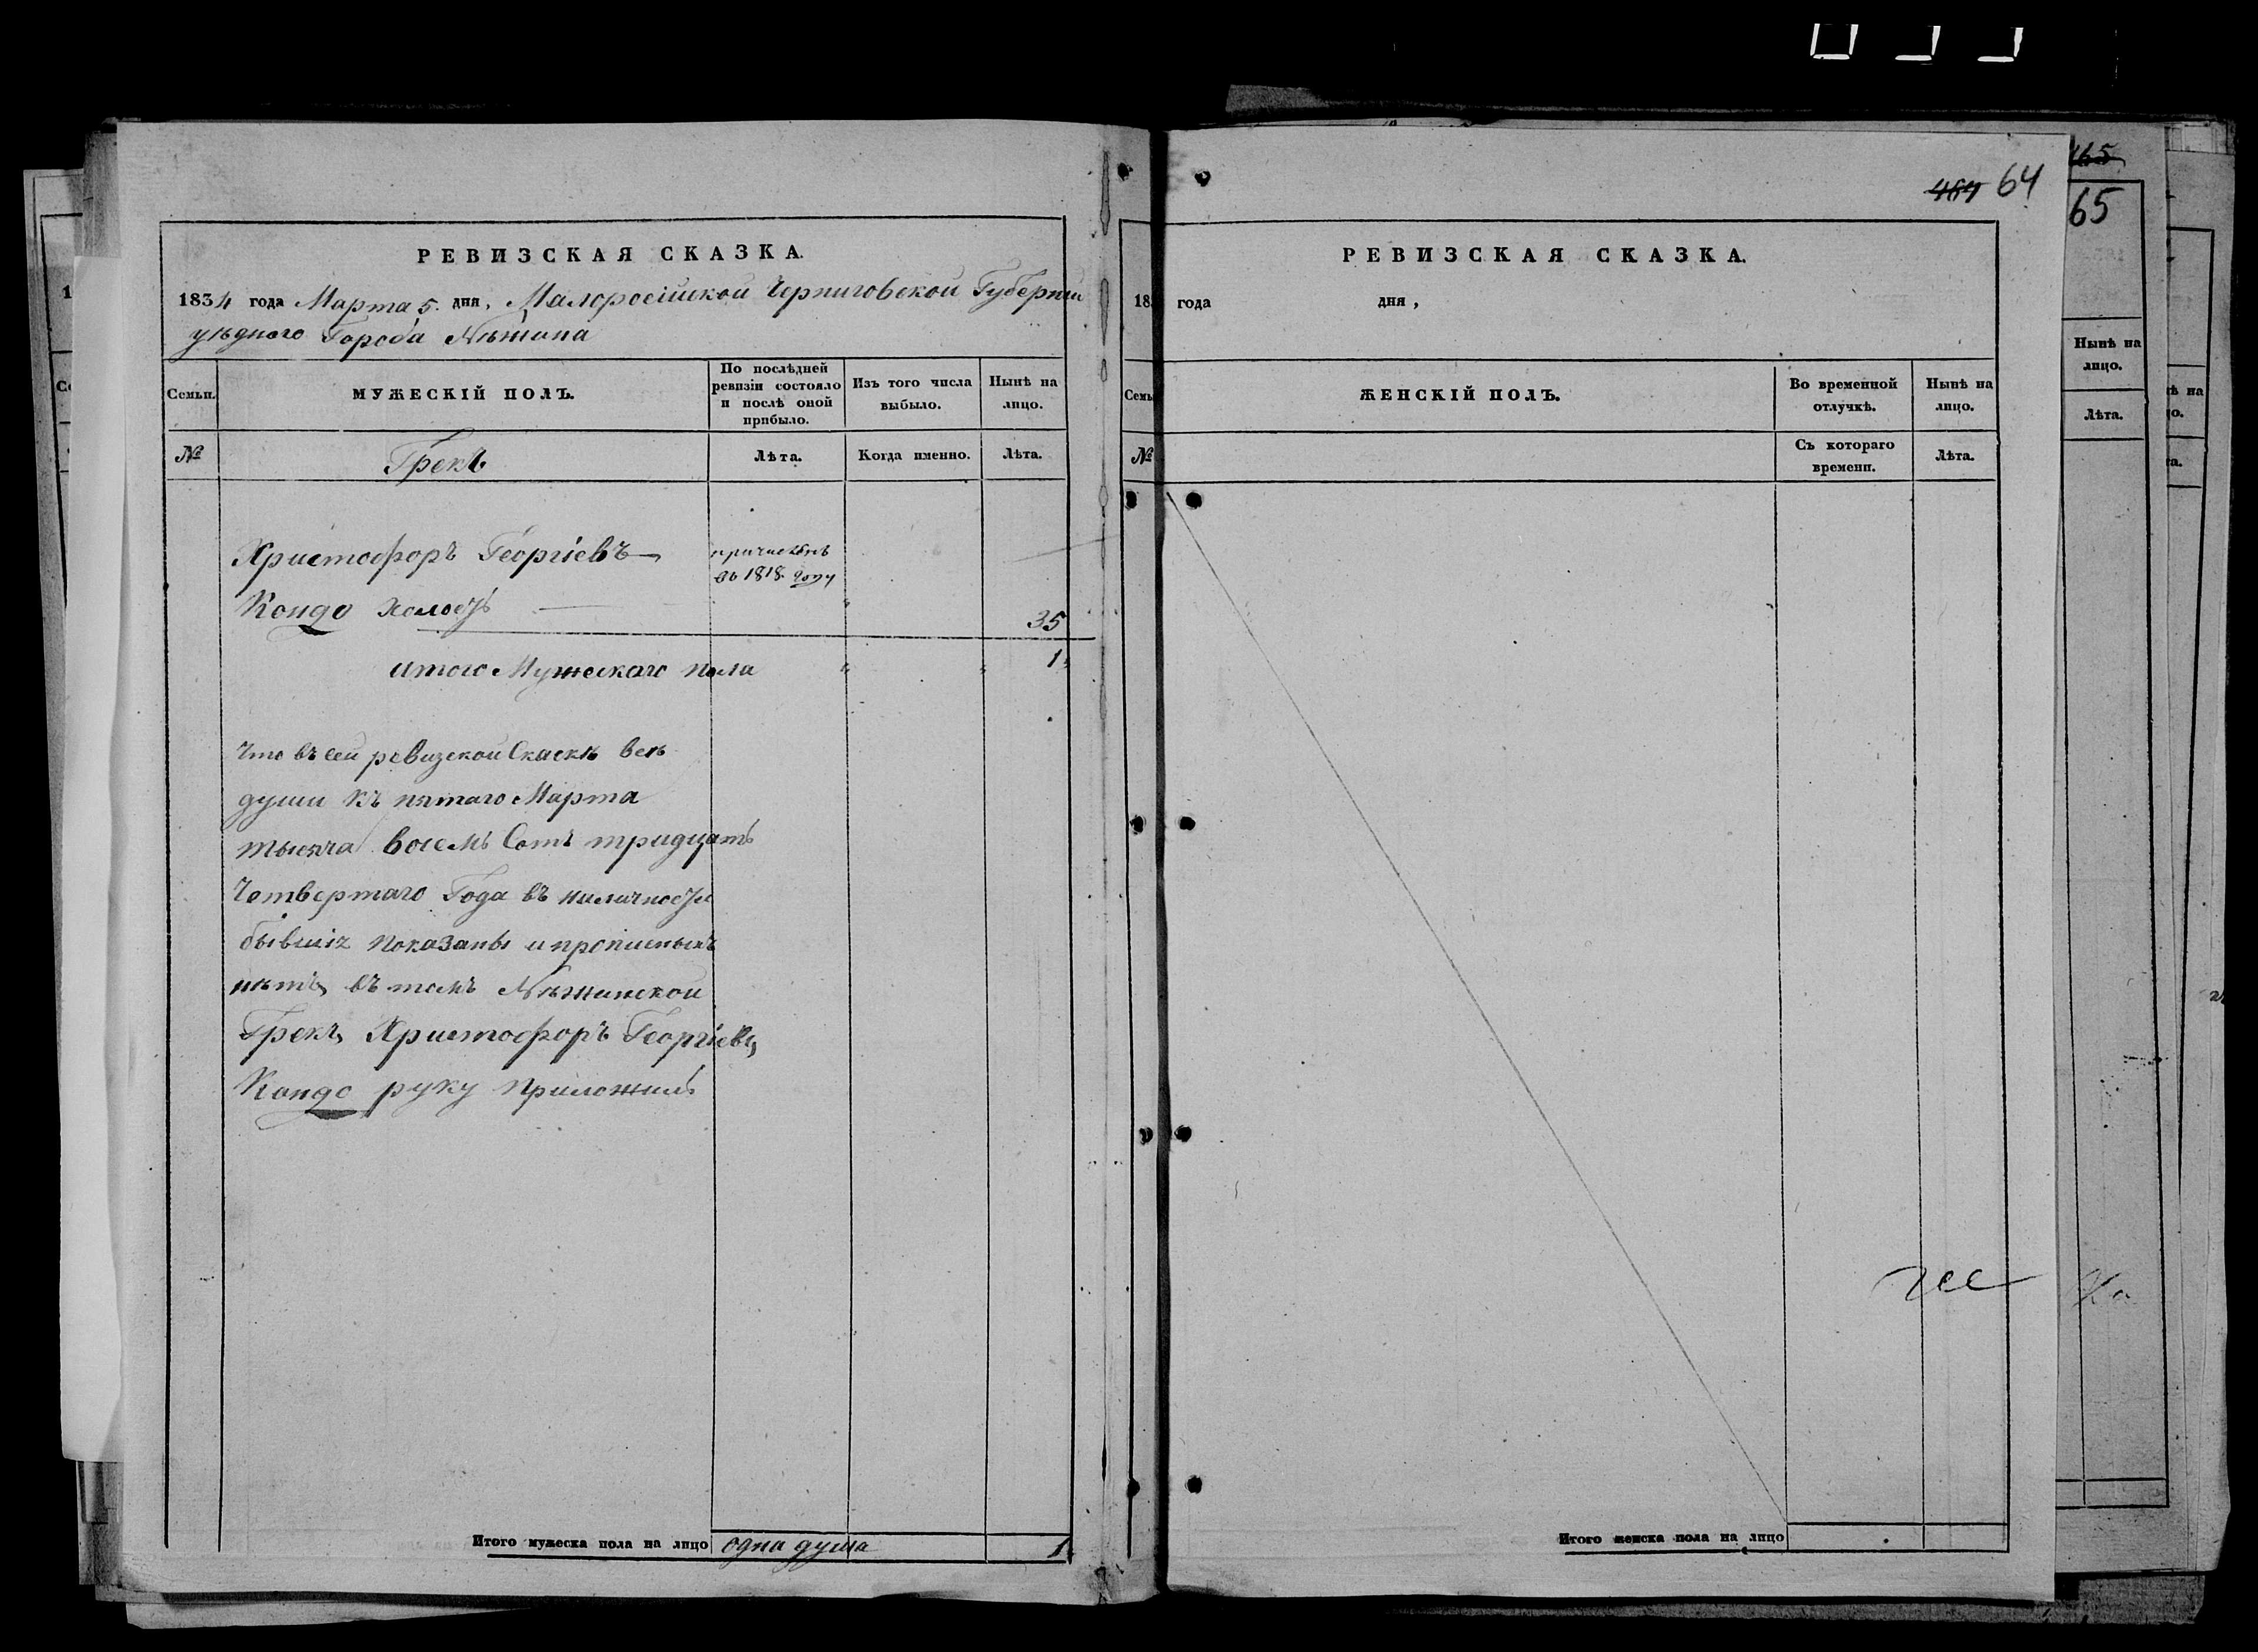 РЕВИЗСКАЯ СКАЗКА.
1834 года Марта 5. дня, Малоросійской Черниговской Губерніи
уѣзднаго Города Нѣжина
Семьи.
МУЖЕСКІЙ ПОЛЪ.
По послѣдней
ревизіи состояло
и послѣ оной
прибыло.
Изъ того числа
выбыло.
Нынѣ на
лицо.
№
Грекъ
Лѣта.
Когда именно.
Лѣта.
Христофоръ Георгіевъ
причисленъ
въ 1818. году
Кондо холостъ
35
итого Мужескаго пола
1
Что въ сей ревизской Скаскѣ всѣ
души къ пятаго Марта
тысяча восемь Сотъ тридцать
Четвертаго Года въ наличности
бывшіх показаны и прописныхъ
нѣтъ, въ томъ Нѣжинской
Грекъ Христофоръ Георгіевъ
Кондо руку приложилъ
Итого мужеска пола на лицо одна душа 1
464 64
РЕВИЗСКАЯ СКАЗКА.
18 года дня,
Семь
ЖЕНСКІЙ ПОЛЪ.
Во временной
отлучкѣ.
Нынѣ на
лицо.
№
Съ котораго
времени.
Лѣта.
Итого женска пола на лицо
165
65
Нынѣ на
лицо.
Лѣта.